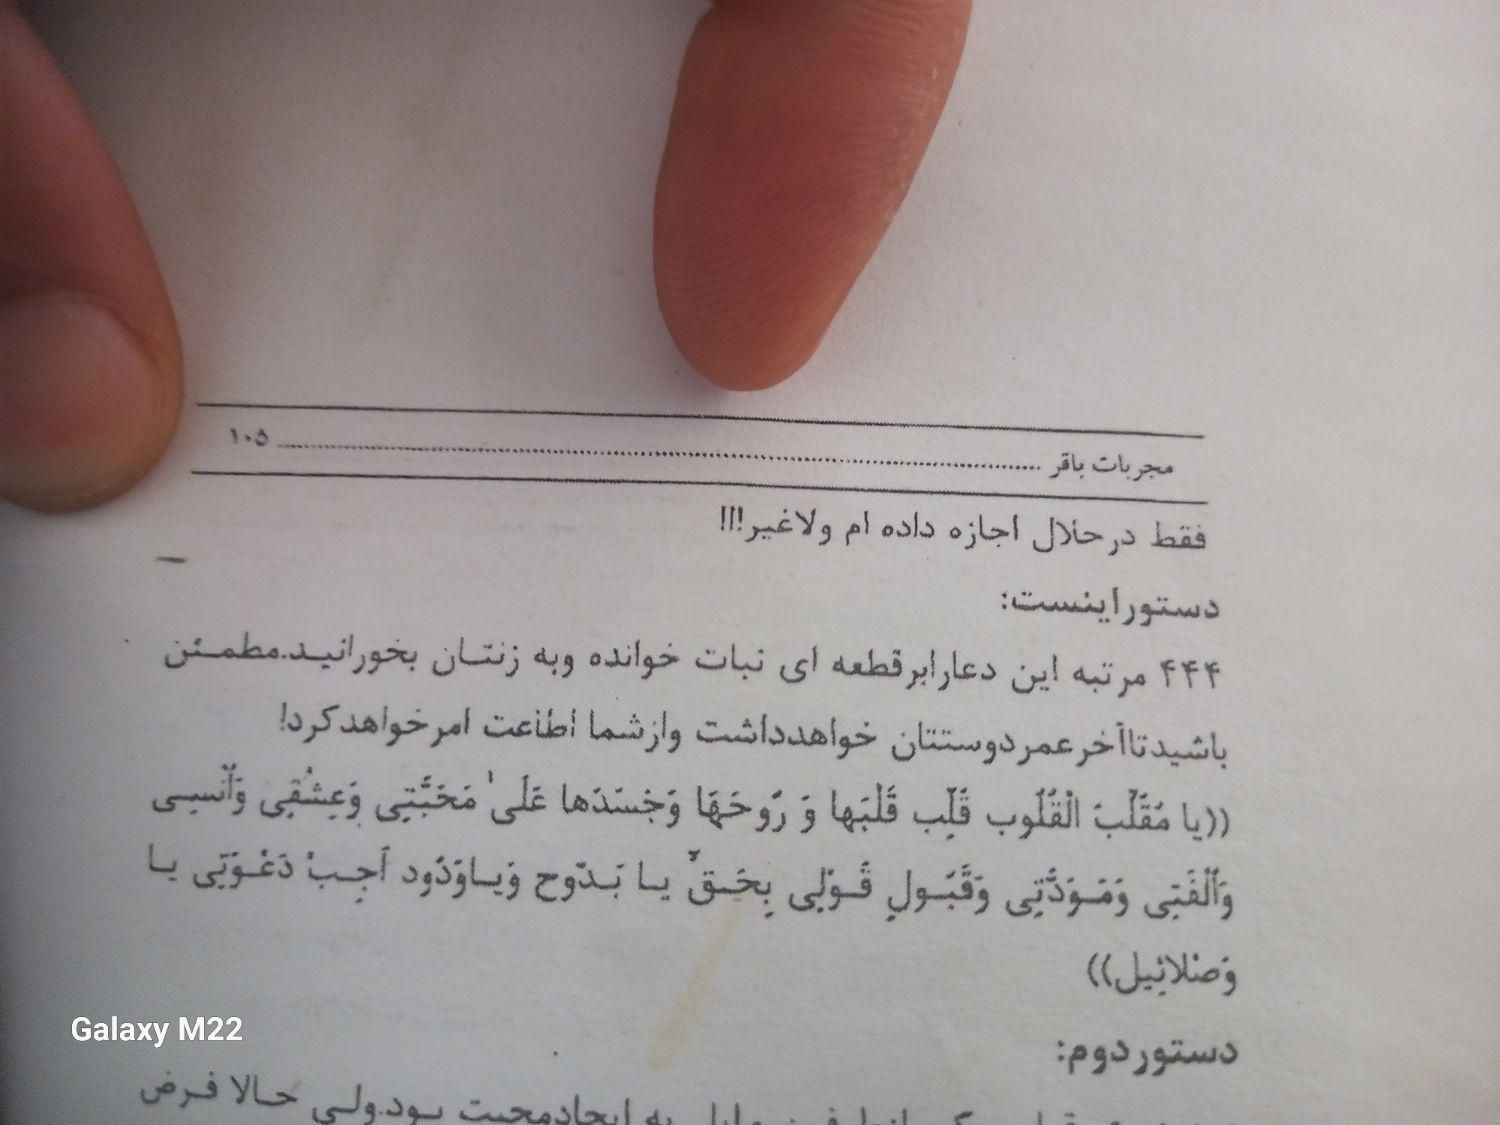 مجربات باقر ........................................ ۱۰۵
فقط درحلال اجازه داده ام ولاغیر!!!
دستوراینست:
۴۴۴ مرتبه این دعارابرقطعه ای نبات خوانده وبه زنتان بخورانید.مطمئن
باشیدتاآخرعمردوستتان خواهدداشت وازشما اطاعت امرخواهدکرد!
((یا مُقَلِّبَ الْقُلُوبِ قَلِّب قَلْبَها وَ رُوحَهَا وَجَسَدَها عَلَی مَحَبَّتِی وَعِشْقِی وَاُنسِی
وَاُلْفَتِی وَمَوَدَّتِی وَقَبُولِ قَوْلِی بِحَقِّ یا بَدّوح وَیاوَدُود اَجِبْ دَعْوَتِی یا
وَصْلائِیل))
دستوردوم:
به ایجادمحبت بود.ولی حالا فرض
Galaxy M22